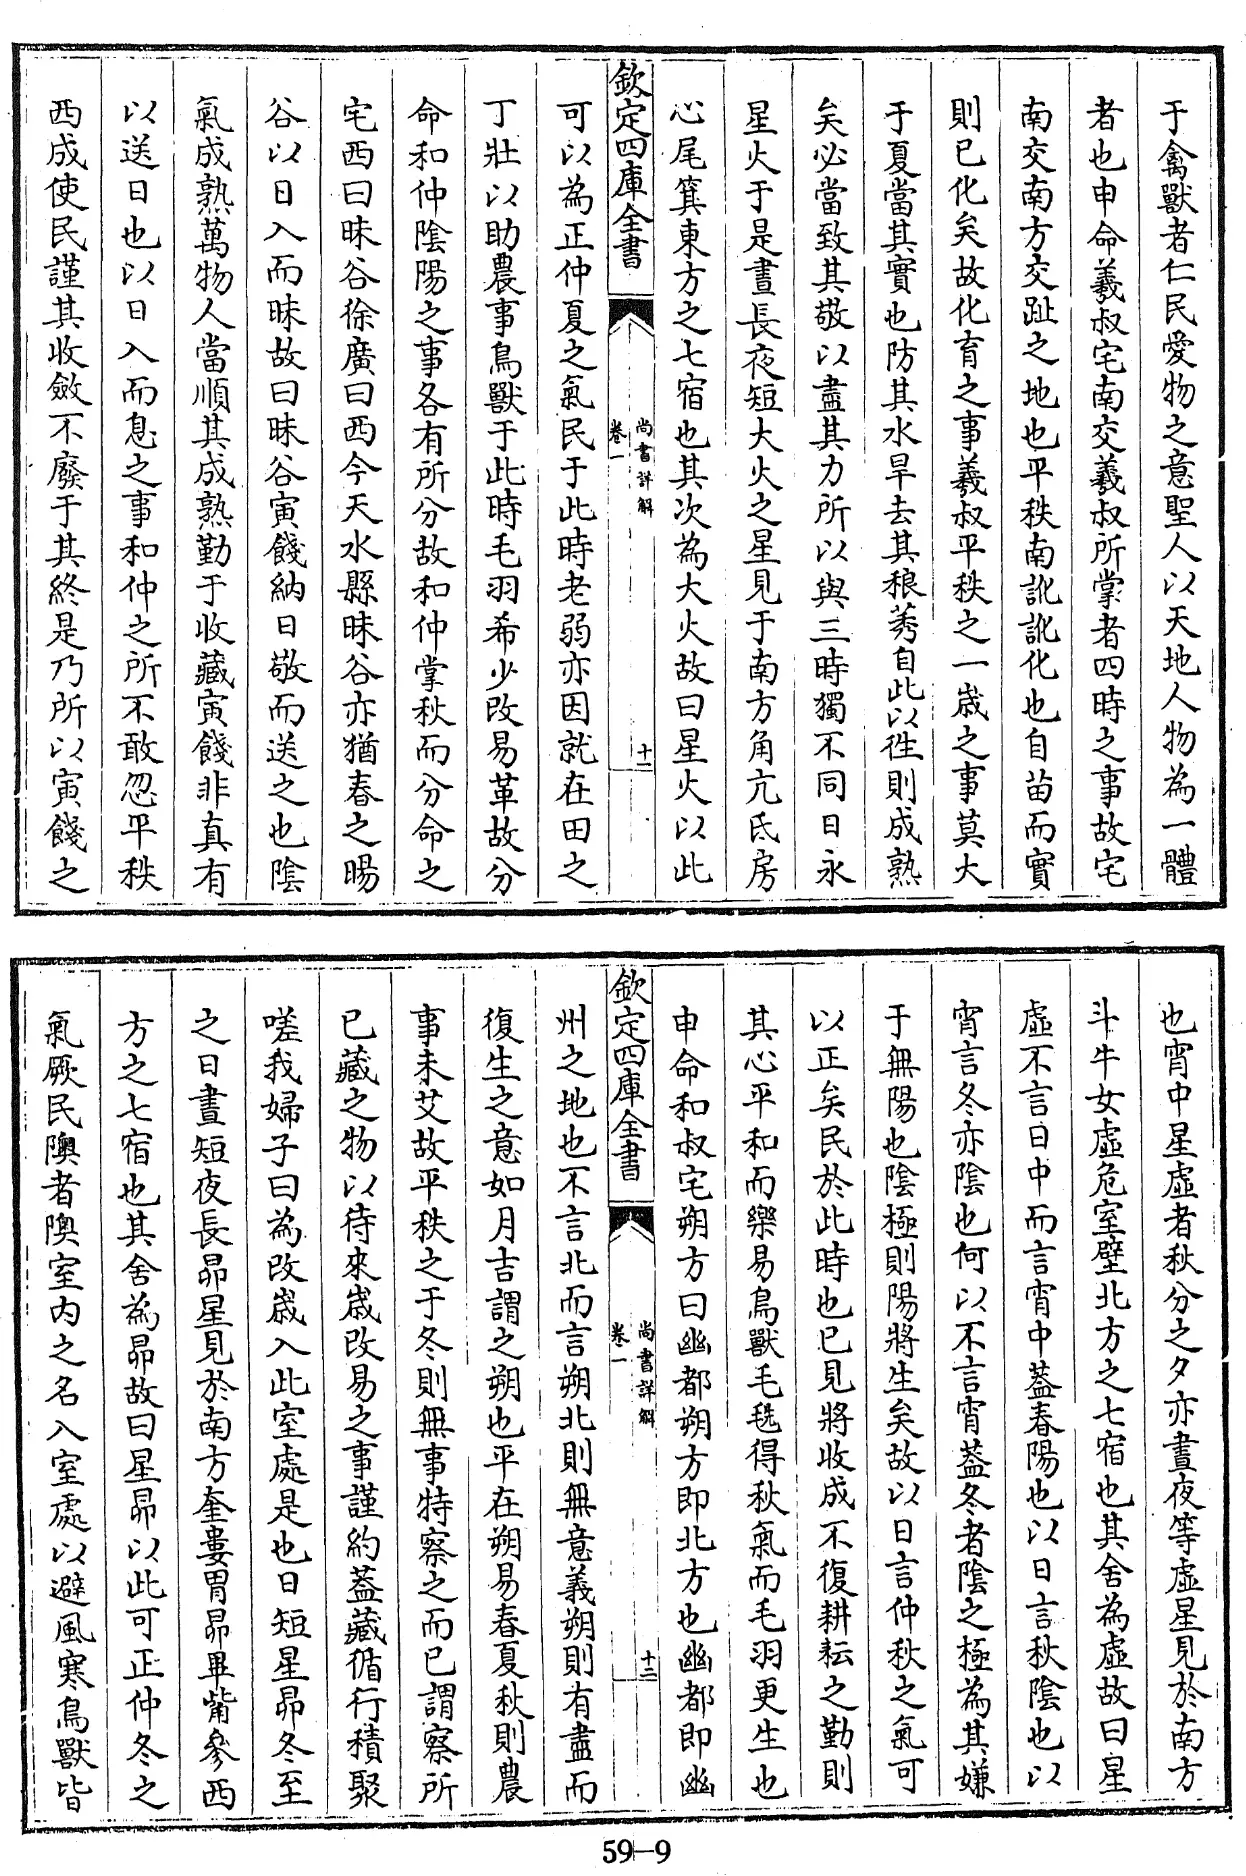 于禽獸者仁民愛物之意聖人以天地人物為一體
者也申命羲叔宅南交羲叔所掌者四時之事故宅
南交南方交趾之地也平秩南訛訛化也自苗而實
則已化矣故化育之事羲叔平秩之一歲之事莫大
于夏當其實也防其水旱去其稂莠自此以徃則成熟
矣必當致其敬以盡其力所以與三時獨不同日永
星火于是晝長夜短大火之星見于南方角亢氐房
心尾箕東方之七宿也其次為大火故曰星火以此
欽定四庫全書
尚書詳解
卷一
十一
可以為正仲夏之氣民于此時老弱亦因就在田之
丁壯以助農事鳥獸于此時毛羽希少改易革故分
命和仲陰陽之事各有所分故和仲掌秋而分命之
宅西曰昧谷徐廣曰西今天水縣昧谷亦猶春之暘
谷以日入而昧故曰昧谷寅餞納日敬而送之也陰
氣成熟萬物人當順其成熟勤于收藏寅餞非真有
以送日也以日入而息之事和仲之所不敢忽平秩
西成使民謹其收斂不廢于其終是乃所以寅餞之
也宵中星虛者秋分之夕亦晝夜等虛星見於南方
斗牛女虛危室壁北方之七宿也其舍為虛故曰星
虛不言日中而言宵中葢春陽也以日言秋陰也以
宵言冬亦陰也何以不言宵葢冬者陰之極為其嫌
于無陽也陰極則陽將生矣故以日言仲秋之氣可
以正矣民於此時也已見將收成不復耕耘之勤則
其心平和而樂易鳥獸毛毨得秋氣而毛羽更生也
申命和叔宅朔方曰幽都朔方即北方也幽都即幽
欽定四庫全書
尚書詳解
卷一
十二
州之地也不言北而言朔北則無意義朔則有盡而
復生之意如月吉謂之朔也平在朔易春夏秋則農
事未艾故平秩之于冬則無事特察之而已謂察所
已藏之物以待來歲改易之事謹約葢藏循行積聚
嗟我婦子曰為改歲入此室處是也日短星昴冬至
之日晝短夜長昴星見於南方奎婁胃昴畢觜參西
方之七宿也其舍為昴故曰星昴以此可正仲冬之
氣厥民隩者隩室內之名入室處以避風寒鳥獸皆
59-9